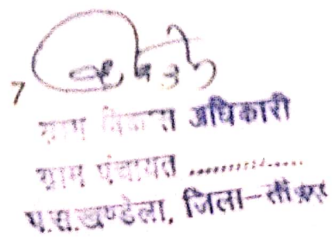 7
ग्राम विकास अधिकारी
ग्राम पंचायत ................
पं.स.खण्डेला, जिला-सीकर